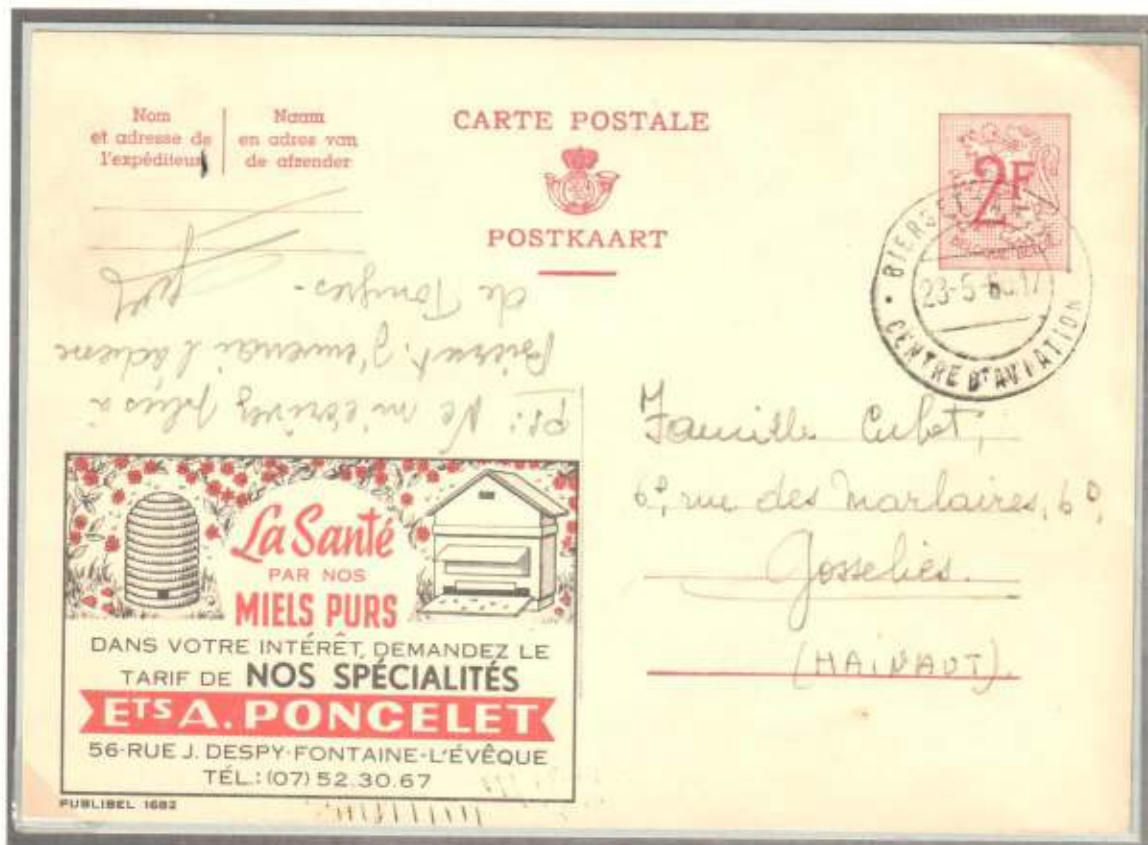 Nom
et adresse de
l'expéditeur
Naam
en adres van
de afzender
CARTE POSTALE
POSTKAART
2F
BELGIQUE BELGIË
BIERSET
23-5-6 .17
CENTRE D'AVIATION
PS: Ne m'écrivez plus à
Bierset. J'enverrai l'adresse
de Tongres.
Famille Cubet,
6D, rue des Marlaires, 6D,
Gosselies.
(HAINAUT).
La Santé
PAR NOS
MIELS PURS
DANS VOTRE INTÉRÊT, DEMANDEZ LE
TARIF DE NOS SPÉCIALITÉS
ETS A. PONCELET
56-RUE J. DESPY-FONTAINE-L'ÉVÊQUE
TÉL.: (07) 52.30.67
PUBLIBEL 1682